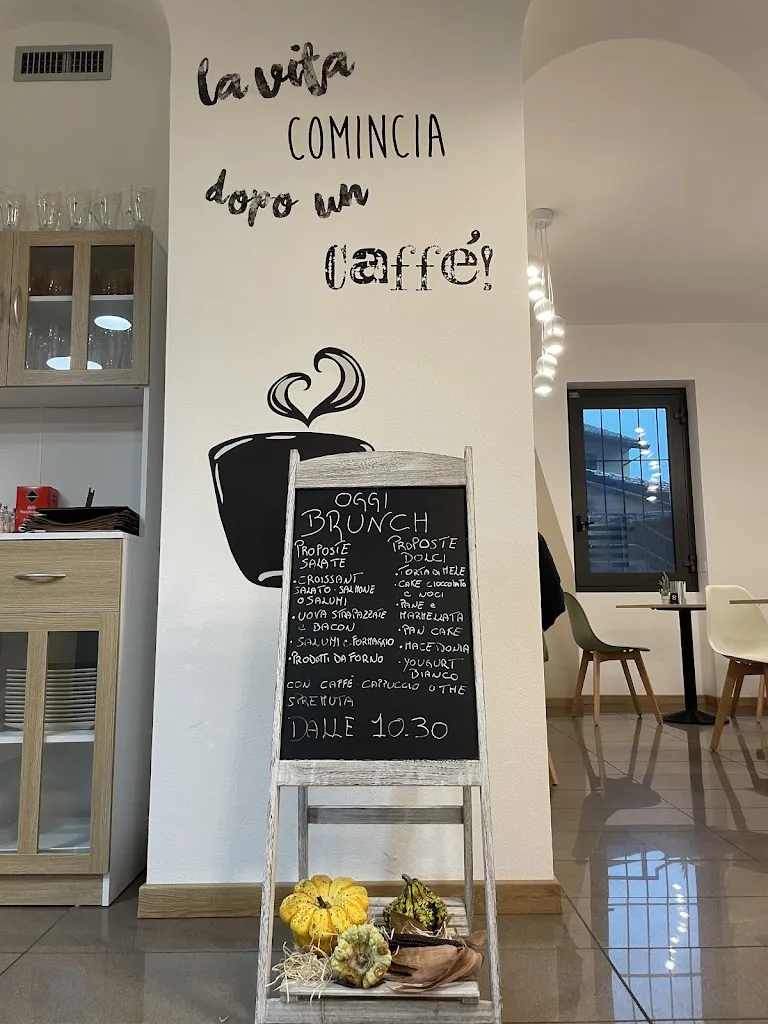 la vita
COMINCIA
dopo un
caffé!
OGGI
BRUNCH
PROPOSTE
SALATE
• CROISSANT
SALATO - SALMONE
O SALUMI
• UOVA STRAPAZZATE
E BACON
• SALUMI E FORMAGGIO
• PRODOTTI DA FORNO
PROPOSTE
DOLCI
• TORTA DI MELE
• CAKE CIOCCOLATO
E NOCI
• PANE E
MARMELLATA
• PAN CAKE
• MACEDONIA
• YOUGURT
BIANCO
CON CAFFÈ CAPPUCCIO O THE
SPREMUTA
DALLE 10.30